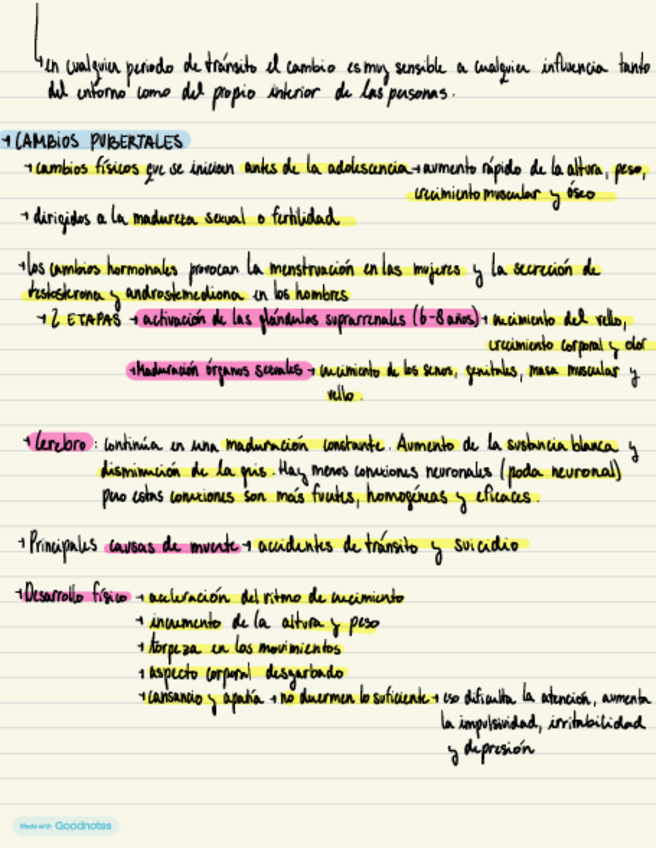 → en cualquier periodo de tránsito el cambio es muy sensible a cualquier influencia tanto
del entorno como del propio interior de las personas.
→ CAMBIOS PUBERTALES
→ cambios físicos que se inician antes de la adolescencia → aumento rápido de la altura, peso,
crecimiento muscular y óseo
→ dirigidos a la madureza sexual o fertilidad
→ los cambios hormonales provocan la menstruación en las mujeres y la secreción de
testosterona y androstemediona en los hombres
→ 2 ETAPAS → activación de las glándulas suprarrenales (6-8 años) → crecimiento del vello,
crecimiento corporal y olor
→ Maduración órganos sexuales → crecimiento de los senos, genitales, masa muscular y
vello.
→ Cerebro: continúa en una maduración constante. Aumento de la sustancia blanca y
disminución de la gris. Hay menos conexiones neuronales (poda neuronal)
pero estas conexiones son más fuertes, homogéneas y eficaces.
→ Principales causas de muerte → accidentes de tránsito y suicidio
→ Desarrollo físico → aceleración del ritmo de crecimiento
→ incremento de la altura y peso
→ torpeza en los movimientos
→ aspecto corporal desgarbado
→ cansancio y apatía → no duermen lo suficiente → eso dificulta la atención, aumenta
la impulsividad, irritabilidad
y depresión
Made with Goodnotes